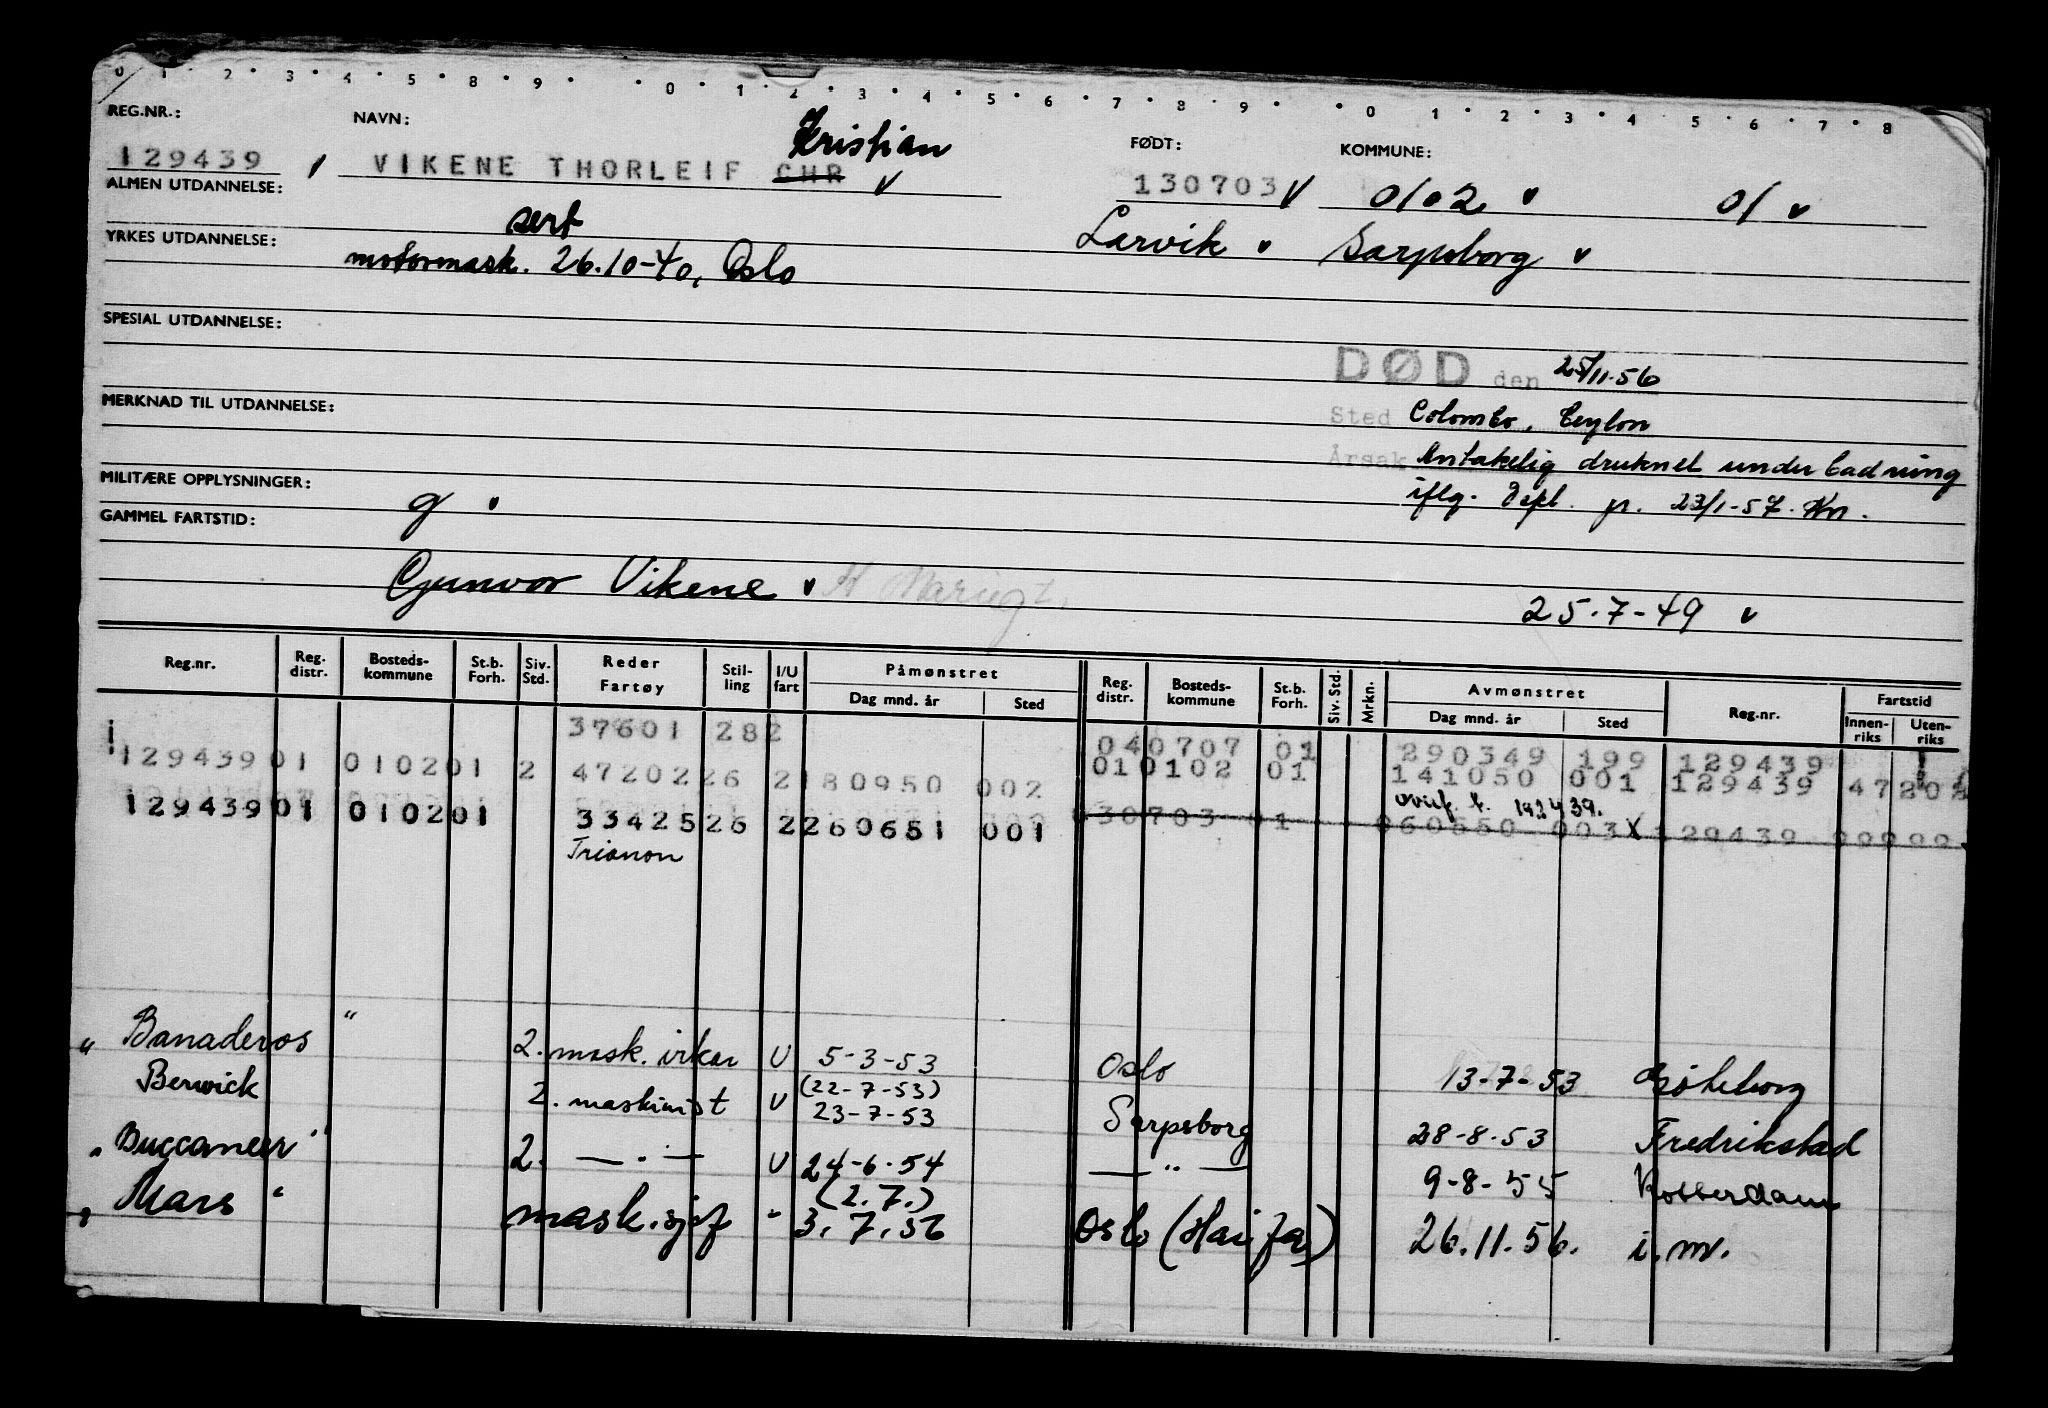 0 1 2 3 4 5 6 7 8 9 0 1 2 3 4 5 6 7 8 9 0 1 2 3 4 5 6 7 8
REG.NR.: NAVN: Kristian FØDT: KOMMUNE:
129439 VIKENE THORLEIF CHR 130703 0102 01
ALMEN UTDANNELSE:
sert Larvik Sarpsborg
YRKES UTDANNELSE: motormask. 26.10-40, Oslo
SPESIAL UTDANNELSE:
DØD den 25/11-56
MERKNAD TIL UTDANNELSE: Sted Colombo, Ceylon
Årsak Antakelig druknet under badning
MILITÆRE OPPLYSNINGER: g iflg. Dept. 23/1-57.
GAMMEL FARTSTID:
Gunvor Vikene 25.7-49
Reg.nr. Reg. distr. Bosteds- kommune St.b. Forh. Siv. Std. Reder Fartøy Stil- ling I/U fart Påmønstret Dag mnd. år Sted Reg. distr. Bosteds- kommune St.b. Forh. Siv. Std. Mrkn. Avmønstret Dag mnd. år Sted Reg.nr. Fartstid Innen- riks Uten- riks
37601 282 040707 01 290349 199 129439
129439 01 010201 2 47202 26 2 180950 002 010102 01 141050 001 129439 47202
129439 01 010201 33425 26 2 260651 001 030703 01 060550 003 X 129439
Trianon
"Banaderos" 2. mask. U 5-3-53 Oslo 13-7-53 Gøteborg
Berwick 2. maskinist U (22-7-53) 23-7-53 Sarpsborg 28-8-53 Fredrikstad
"Buccaneer" 2. —.— U 24-6-54 —"— 9-8-55 Rotterdam
"Mars" mask.sjef " (2.7.) 3.7.56 Oslo (Haifa) 26.11.56. i.m.